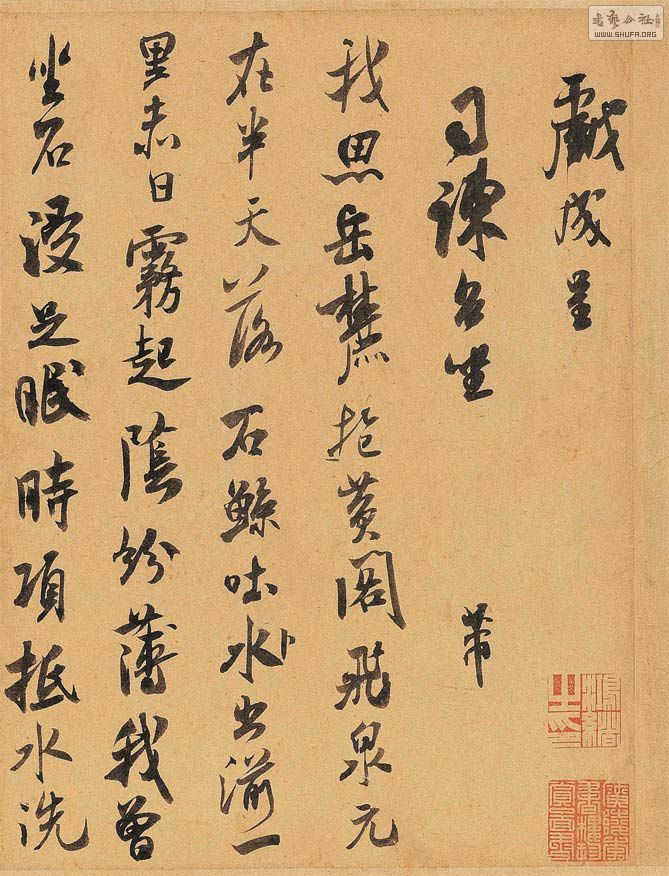 戲成呈
司諫台坐
芾
我思岳麓抱黃閣飛泉元
在半天落石鯨吐水出湔一
里赤日霧起陰紛薄我曾
坐石浸足眠時項抵水洗
書藝公社
WWW.SHUFA.ORG